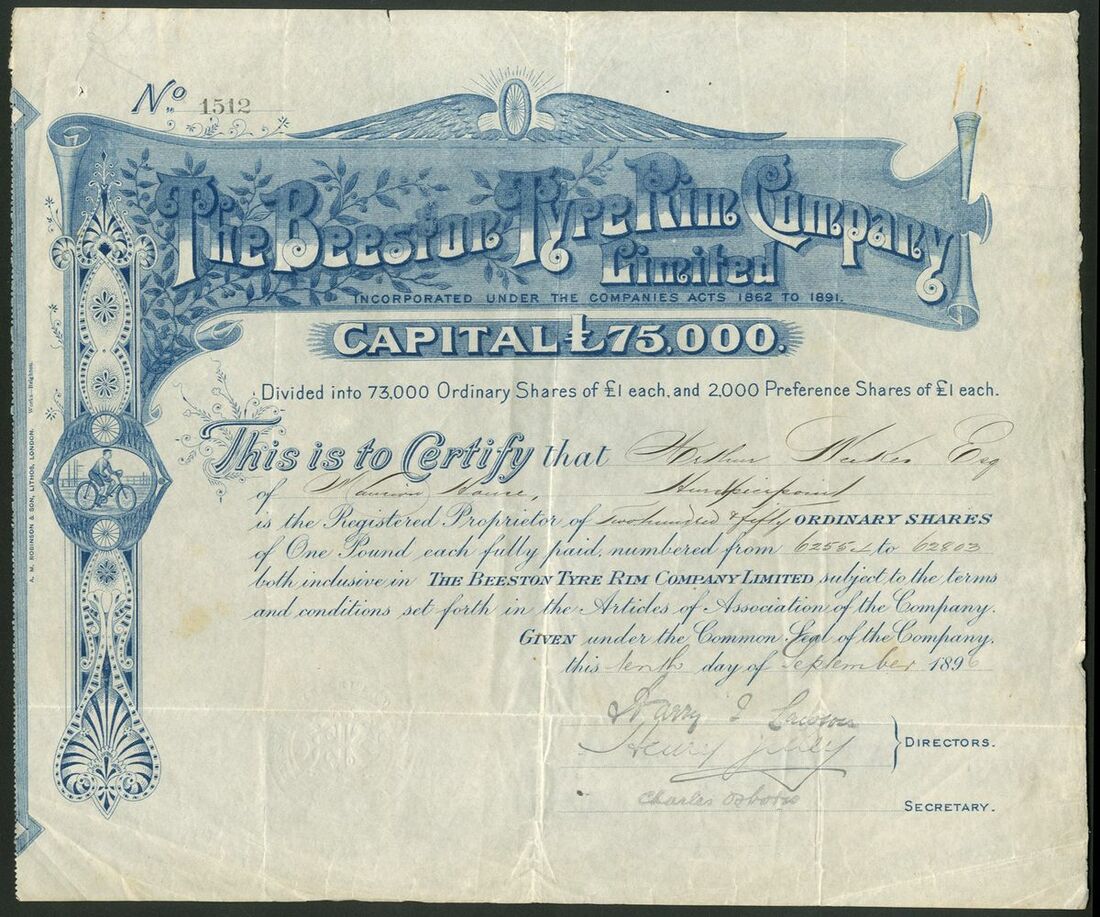 No. 1512
The Beeston Tyre Rim Company
Limited
INCORPORATED UNDER THE COMPANIES ACTS 1862 TO 1891.
CAPITAL £75,000.
Divided into 73,000 Ordinary Shares of £1 each, and 2,000 Preference Shares of £1 each.
This is to Certify that Arthur Weekes Esq
of Mansion House, Hurstpierpoint
is the Registered Proprietor of Two hundred & fifty ORDINARY SHARES
of One Pound each fully paid, numbered from 62554 to 62803
both inclusive in THE BEESTON TYRE RIM COMPANY LIMITED subject to the terms
and conditions set forth in the Articles of Association of the Company.
GIVEN under the Common Seal of the Company,
this tenth day of September 1896
Harry J Lawson
Henry
DIRECTORS.
Charles Osborn
SECRETARY.
A. M. ROBINSON & SON, LITHOS, LONDON. Works-Brighton.